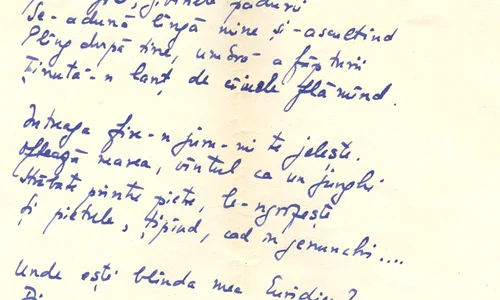 păduri
Se-adună lîngă mine și-ascultînd
Plîng după tine, umbră a făpturii
Ținută-n lanț de cîinele flămînd.
Întreaga fire-n juru-mi te jelește.
Oftează marea, vîntul ca un junghi
printre pietre, le-ngrozește
Și pietrele, țipînd, cad în genunchi....
Unde ești blînda mea Euridice?